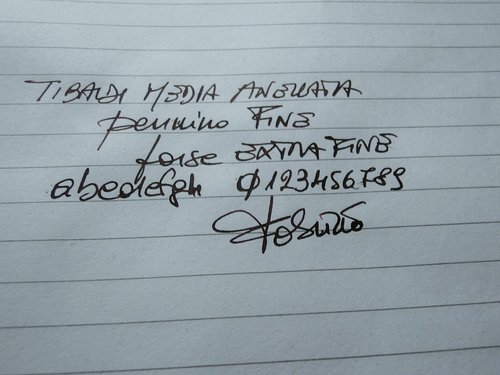 TIBALDI MEDIA ANELLATA
pennino FINE
forse EXTRA FINE
abcdefgh 0123456789
Fabrizio